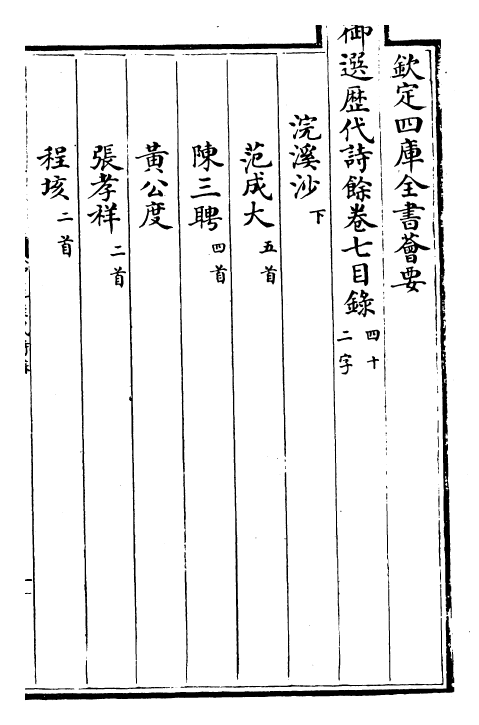 欽定四庫全書薈要
御選歴代詩餘卷七目錄四十二字
浣溪沙下
范成大五首
陳三聘四首
黃公度
張孝祥二首
程垓二首